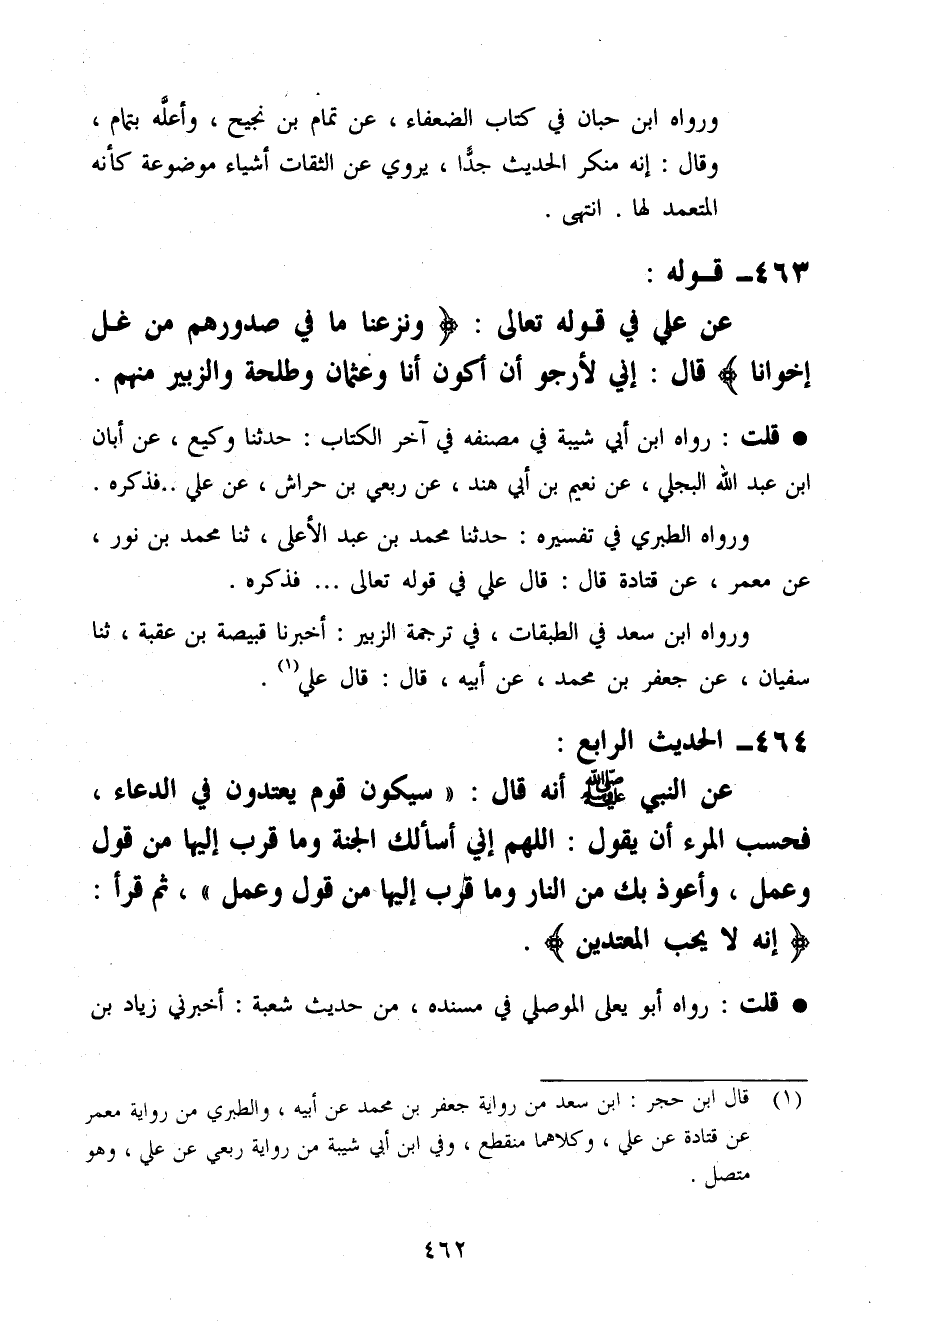 ورواه ابن حبان في كتاب الضعفاء ، عن تمام بن نجيح ، وأعلَّه بتمام ،
وقال : إنه منكر الحديث جدًّا ، يروي عن الثقات أشياء موضوعة كأنه
المتعمد لها . انتهى .
٤٦٣ـ قـوله :
عن علي في قـوله تعالى : ﴿ ونزعنا ما في صدورهم من غـل
إخوانا ﴾ قال : إني لأرجو أن أكون أنا وعثمان وطلحة والزبير منهم .
● قلت : رواه ابن أبي شيبة في مصنفه في آخر الكتاب : حدثنا وكيع ، عن أبان
ابن عبد الله البجلي ، عن نعيم بن أبي هند ، عن ربعي بن حراش ، عن علي ..فذكره .
ورواه الطبري في تفسيره : حدثنا محمد بن عبد الأعلى ، ثنا محمد بن نور ،
عن معمر ، عن قتادة قال : قال علي في قوله تعالى ... فذكره .
ورواه ابن سعد في الطبقات ، في ترجمة الزبير : أخبرنا قبيصة بن عقبة ، ثنا
سفيان ، عن جعفر بن محمد ، عن أبيه ، قال : قال علي(١) .
٤٦٤ـ الحديث الرابع :
عن النبي ﷺ أنه قال : « سيكون قوم يعتدون في الدعاء ،
فحسب المرء أن يقول : اللهم إني أسألك الجنة وما قرب إليها من قول
وعمل ، وأعوذ بك من النار وما قرب إليها من قول وعمل » ، ثم قرأ :
﴿ إنه لا يحب المعتدين ﴾ .
● قلت : رواه أبو يعلى الموصلي في مسنده ، من حديث شعبة : أخبرني زياد بن
(١) قال ابن حجر : ابن سعد من رواية جعفر بن محمد عن أبيه ، والطبري من رواية معمر
عن قتادة عن علي ، وكلاهما منقطع ، وفي ابن أبي شيبة من رواية ربعي عن علي ، وهو
متصل .
٤٦٢